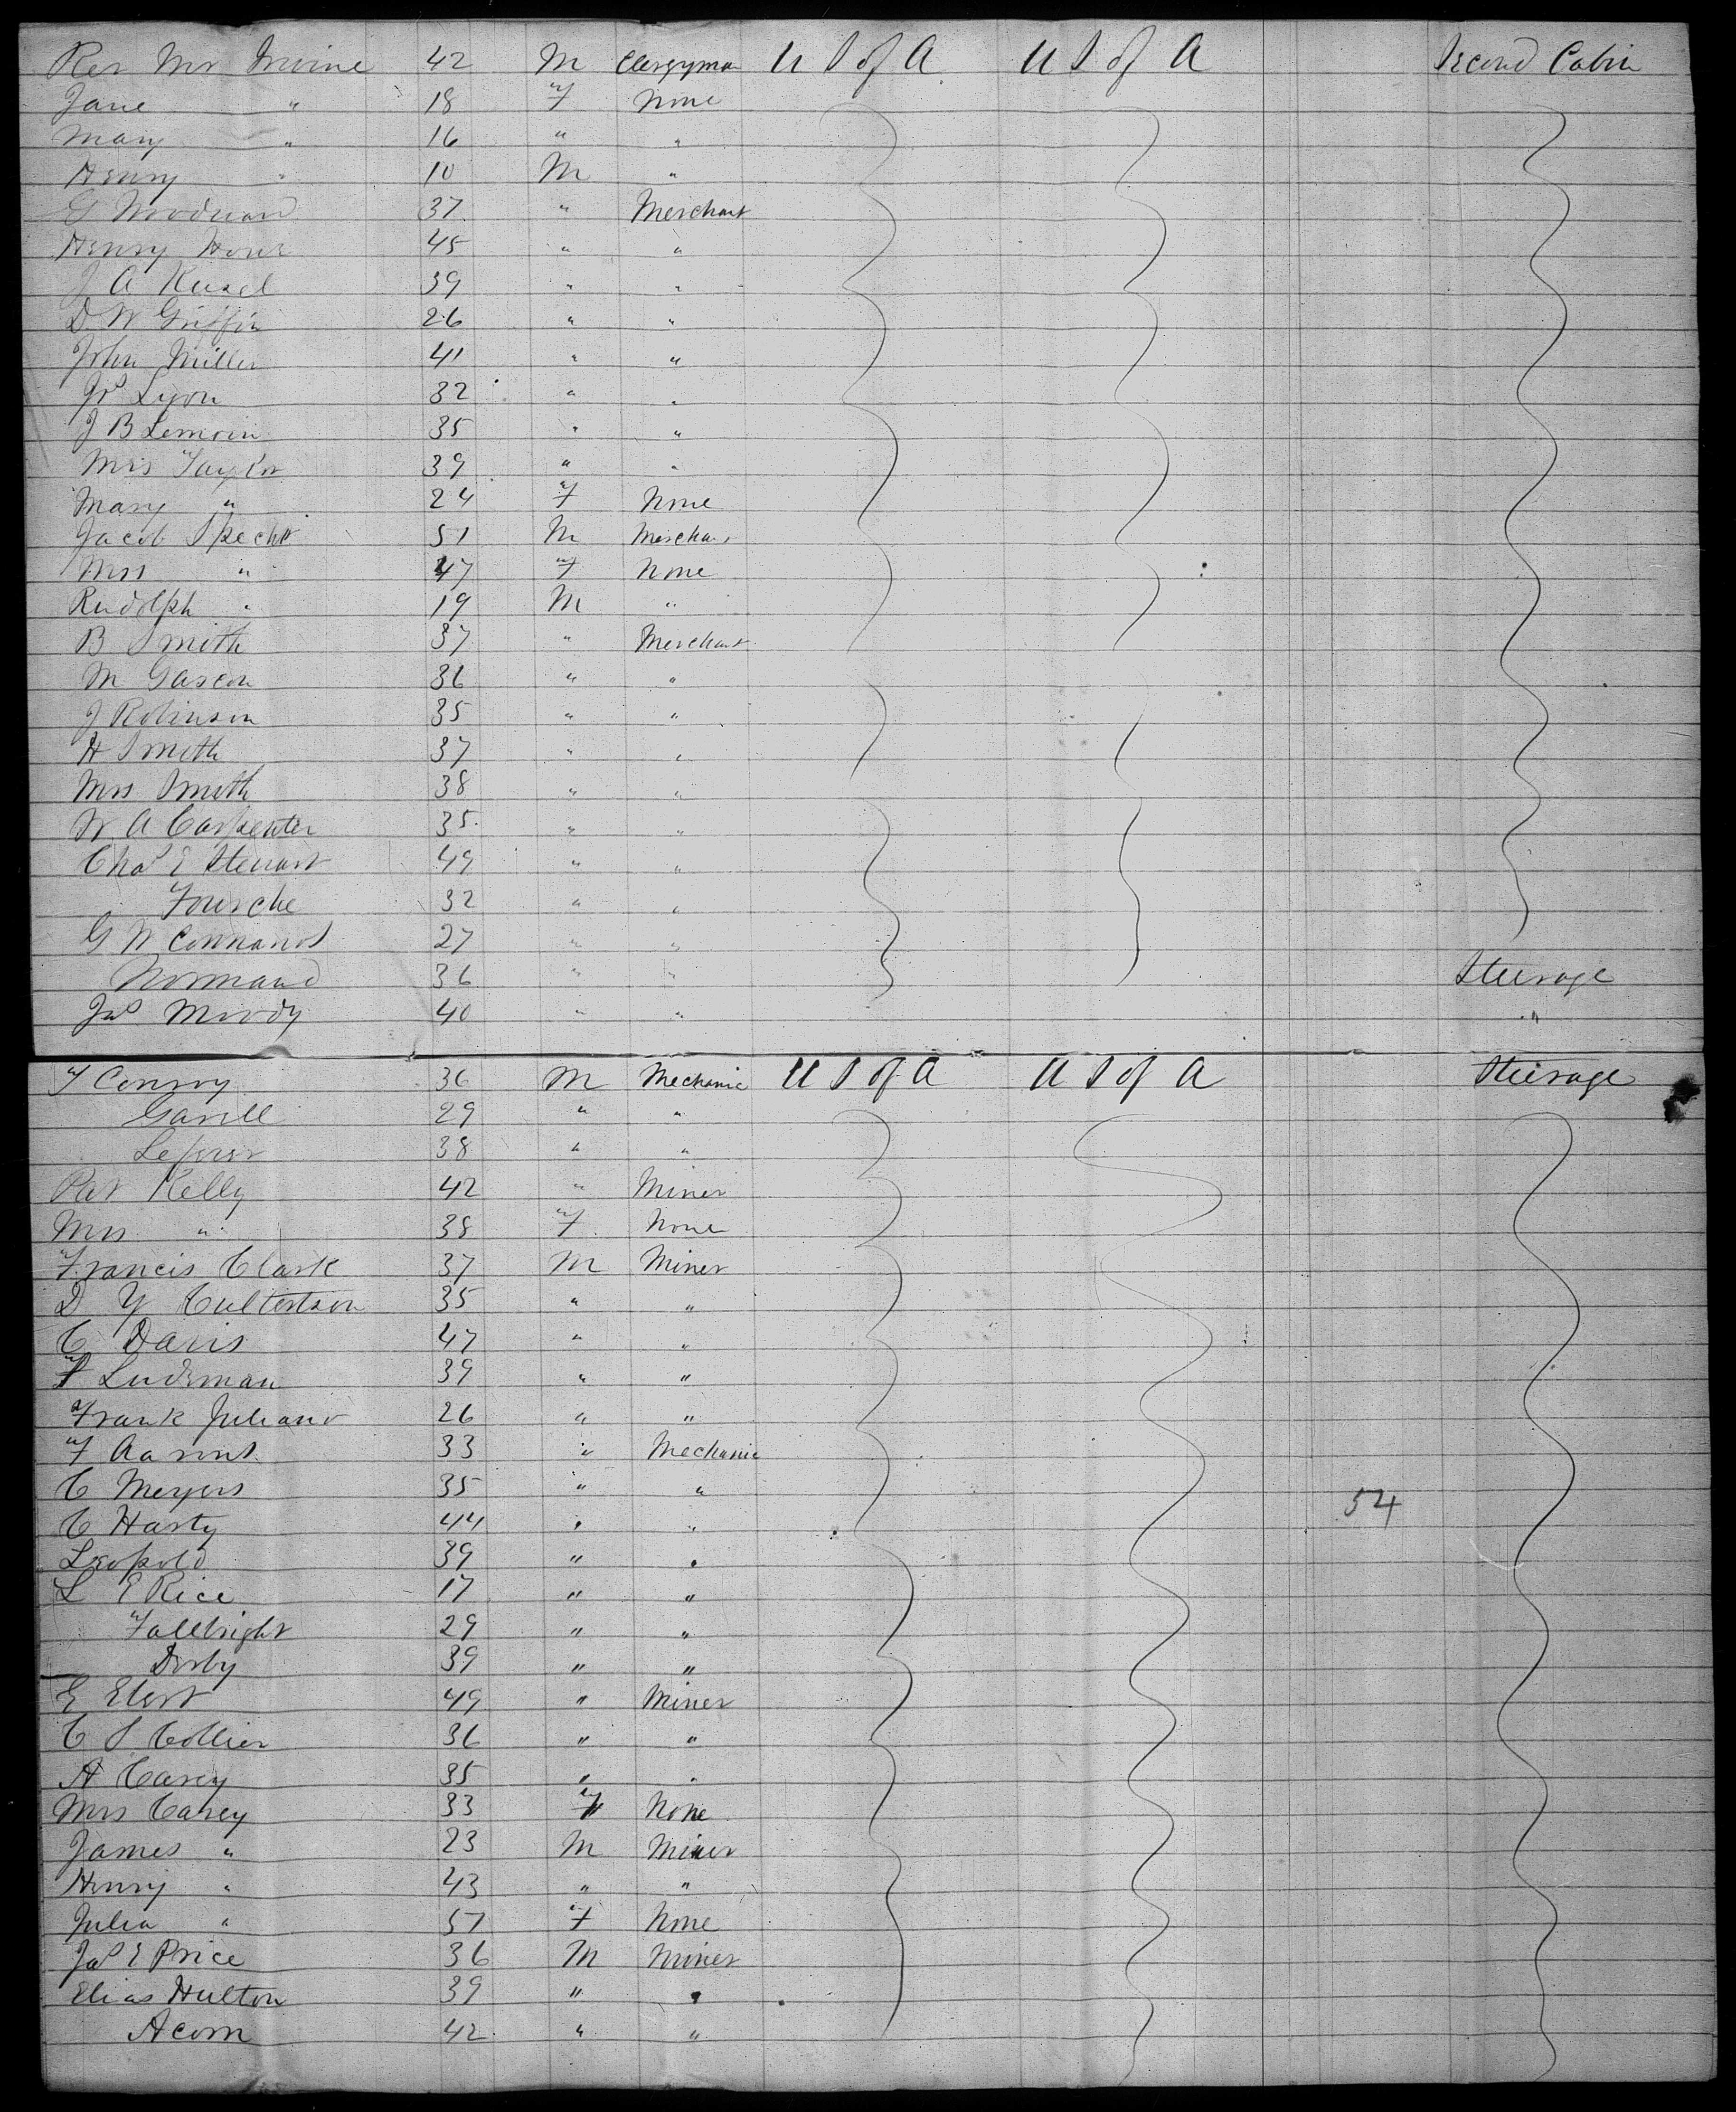 Rev Mr Irvine 42 M Clergyman U S of A U S of A Second Cabin
Jane " 18 F None
Mary " 16 " "
Henry " 10 M "
G Woodward 37 " Merchant
Henry Howe 45 " "
J A Rusel 39 " "
D W Griffin 26 " "
John Miller 41 " "
Jos Lyon 32 " "
J B Lemoin 35 " "
Mrs Taylor 39 " "
Mary " 24 F None
Jacob Specht 51 M Merchant
Mrs " 47 F None
Rudolph " 19 M "
B Smith 37 " Merchant
M Gascon 36 " "
J Robinson 35 " "
H Smith 37 " "
Mrs Smith 38 " "
W A Carpenter 35 " "
Chas E Stewart 49 " "
Fourche 32 " "
G W Connano 27 " "
Normand 36 " " Steerage
Jas Moody 40 " " "
T Conroy 36 M Mechanic U S of A U S of A Steerage
Garell 29 " "
38 " "
Pat Kelly 42 " Miner
Mrs " 38 F None
Francis Clark 37 M Miner
D Y Culbertson 35 " "
C Davis 47 " "
F Luderman 39 " "
Frank Juliano 26 " "
F Aarons 33 " Mechanic
C Meyers 35 " " 54
C Harty 44 " "
Leopold 39 " "
L E Rice 17 " "
Fallbright 29 " "
Derby 39 " "
E Ebert 49 " Miner
C S Collier 36 " "
A Carey 35 " "
Mrs Carey 33 F None
James " 23 M Miner
Henry " 43 " "
Julia " 51 F None
Jas E Price 36 M Miner
Elias Hulton 39 " "
Acorn 42 " "